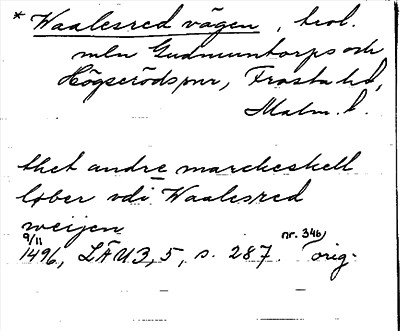 * Waalesred vägen, trol.
mln Gudmuntorps och
Högserödsnr, Frosta hd,
Malm. l.
thet andre marckeskell
løber vdi Waalesred
weijen
9/11
1496, LÄU 3, 5, s. 287. nr. 346, orig.